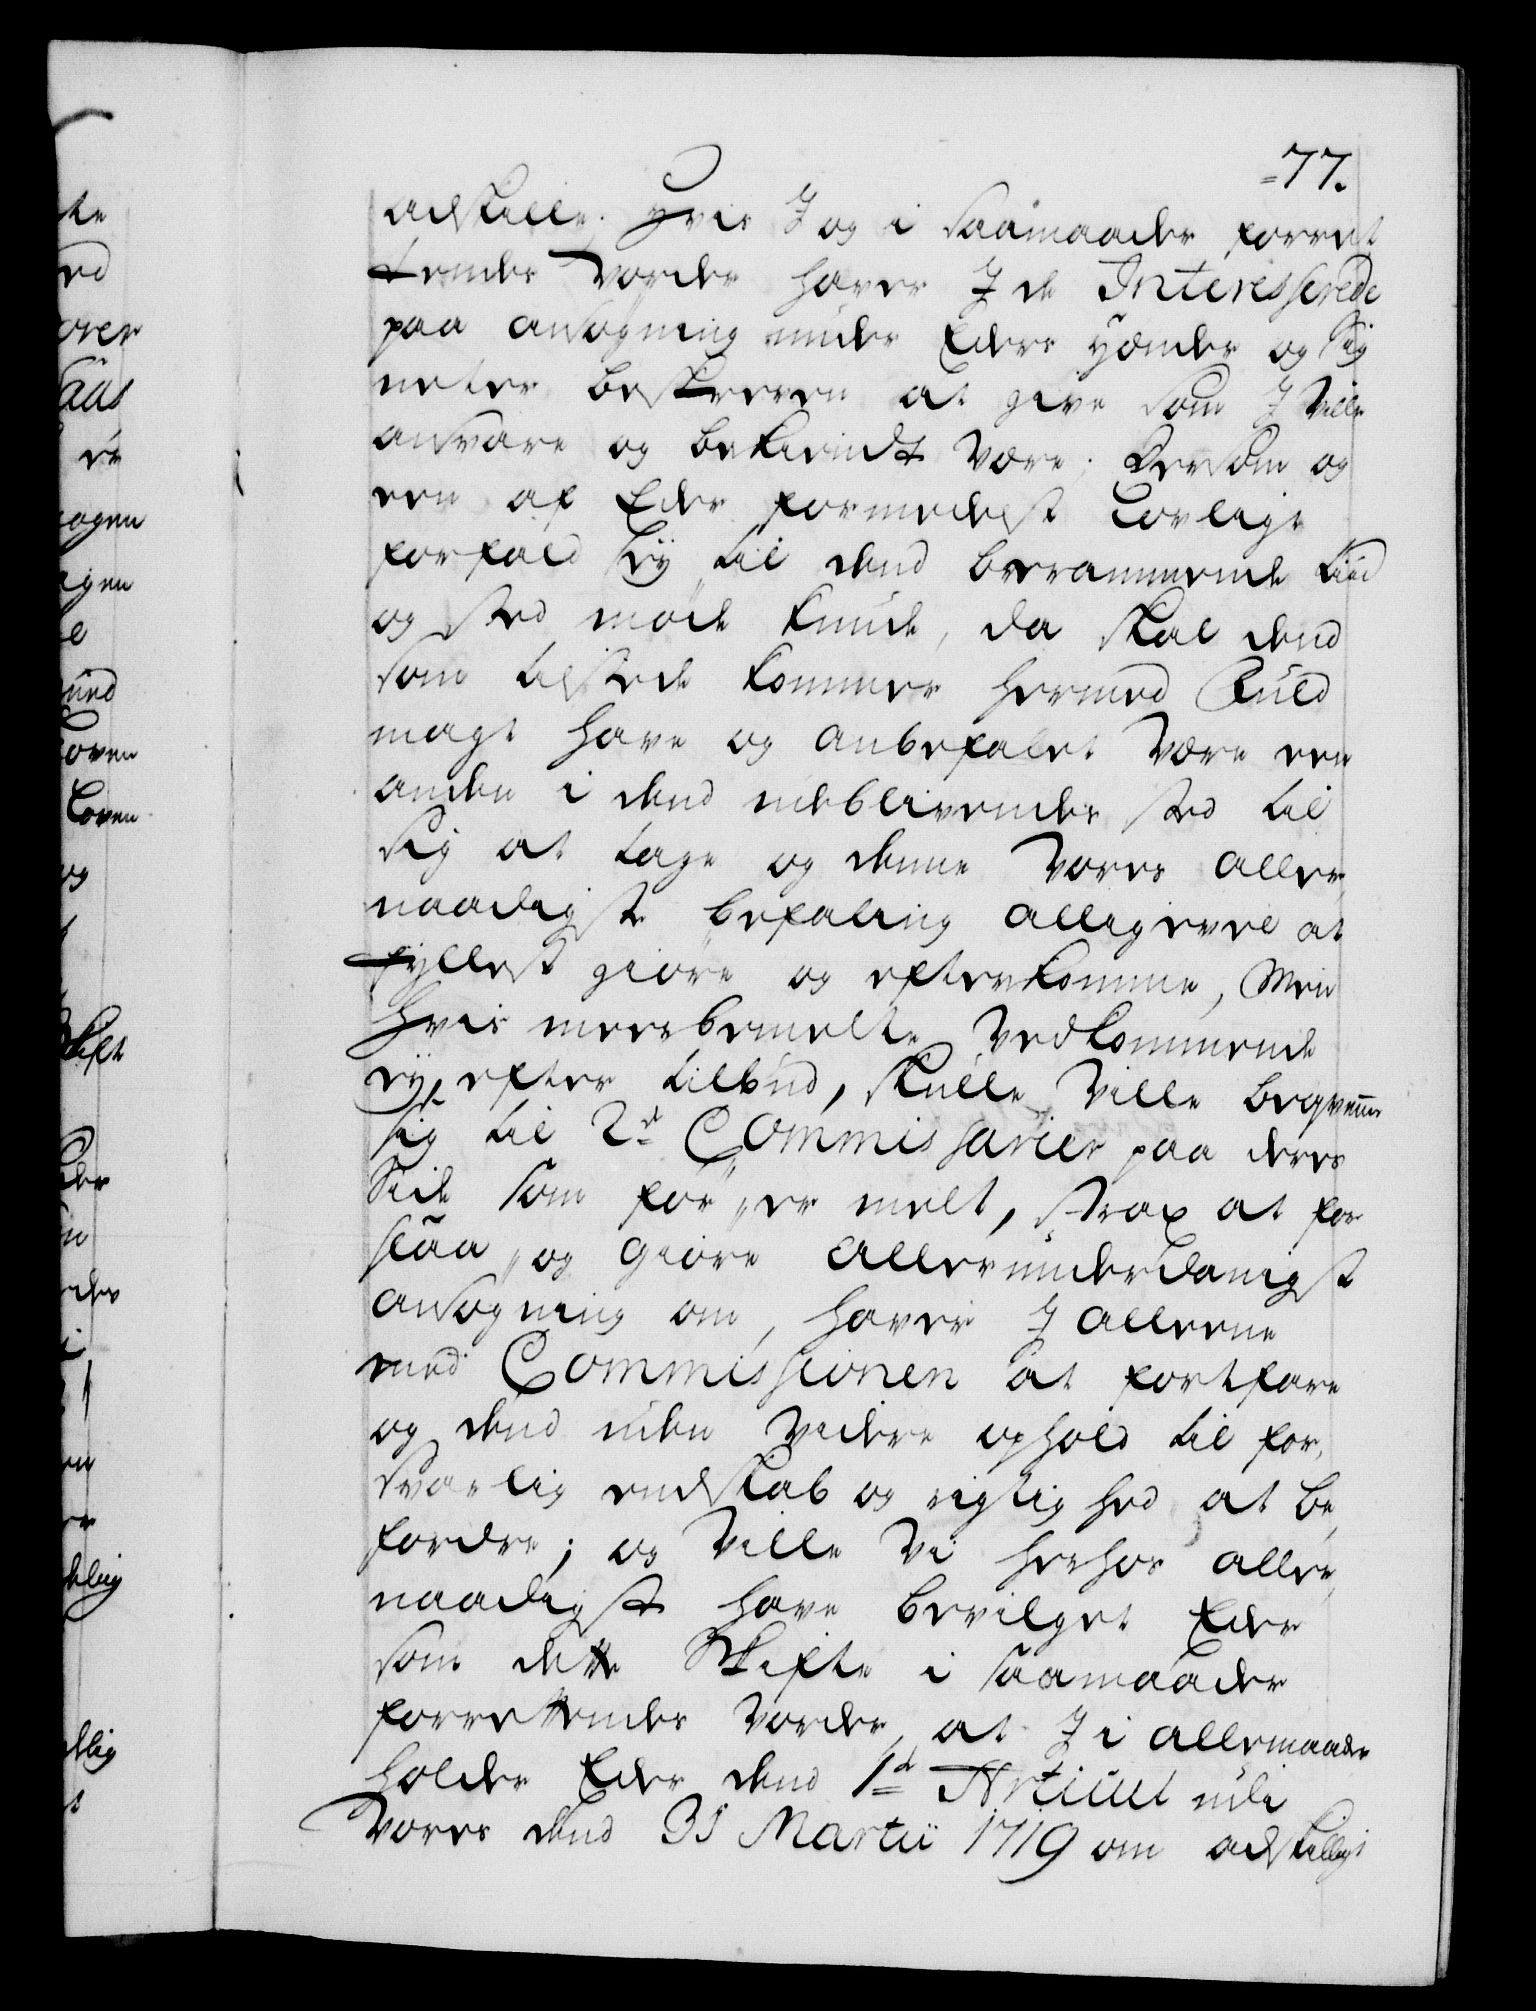 77.
adskille. Hvis I og i saamaader forret
tendes vorder haver I de Interesserede
paa ansøgning under Eders hænder og Sig
neter beskreven at give som I ville
ansvare og bekiendt være. Dersom og
een af Eder formedelst Lovlige
forfald ey til dend berammende tiid
og sted møde kunde, da skal dend
som tilstede kommer hermed Fuld
magt have og anbefalet være een
anden i dend udeblivendes sted til
sig at tage og denne vores aller,
naadigste befaling alligevel at
fyllest giøre og efterkomme, Men
hvis meerbemelte vedkommende
ey, efter tilbud, skulle ville beqvemme
sig til 2de Commissarier paa deres
Side som før er melt, strax at for
slaa, og giøre allerunderdanigst
ansøgning om, haver I alleene
med Commissionen at fortfare
og dend uden videre ophold til for,
svarlig endskab og rigtighed at be,
fordre; og ville vi herhos aller,
naadigst have bevilget Eder
som dette Skifte i saamaader
forrettendes vorder, at I i allemaader
holder Eder dend 1te Articul udi
vores dend 31 Martii 1719 om adskilligt